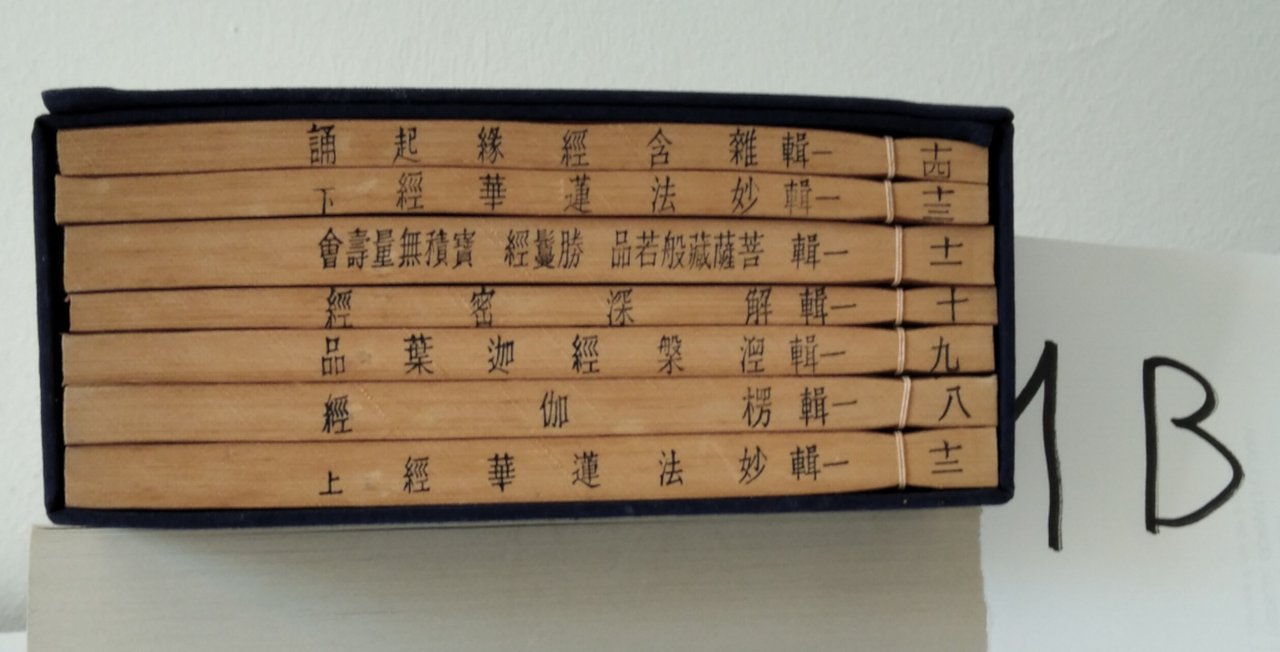 十四 一輯 雜含經緣起誦
十三 一輯 妙法蓮華經 下
十一 一輯 菩薩藏般若品 勝鬘經 寶積無量壽會
十 一輯 解深密經
九 一輯 湼槃經迦葉品
八 一輯 楞伽經
十二 一輯 妙法蓮華經 上
B